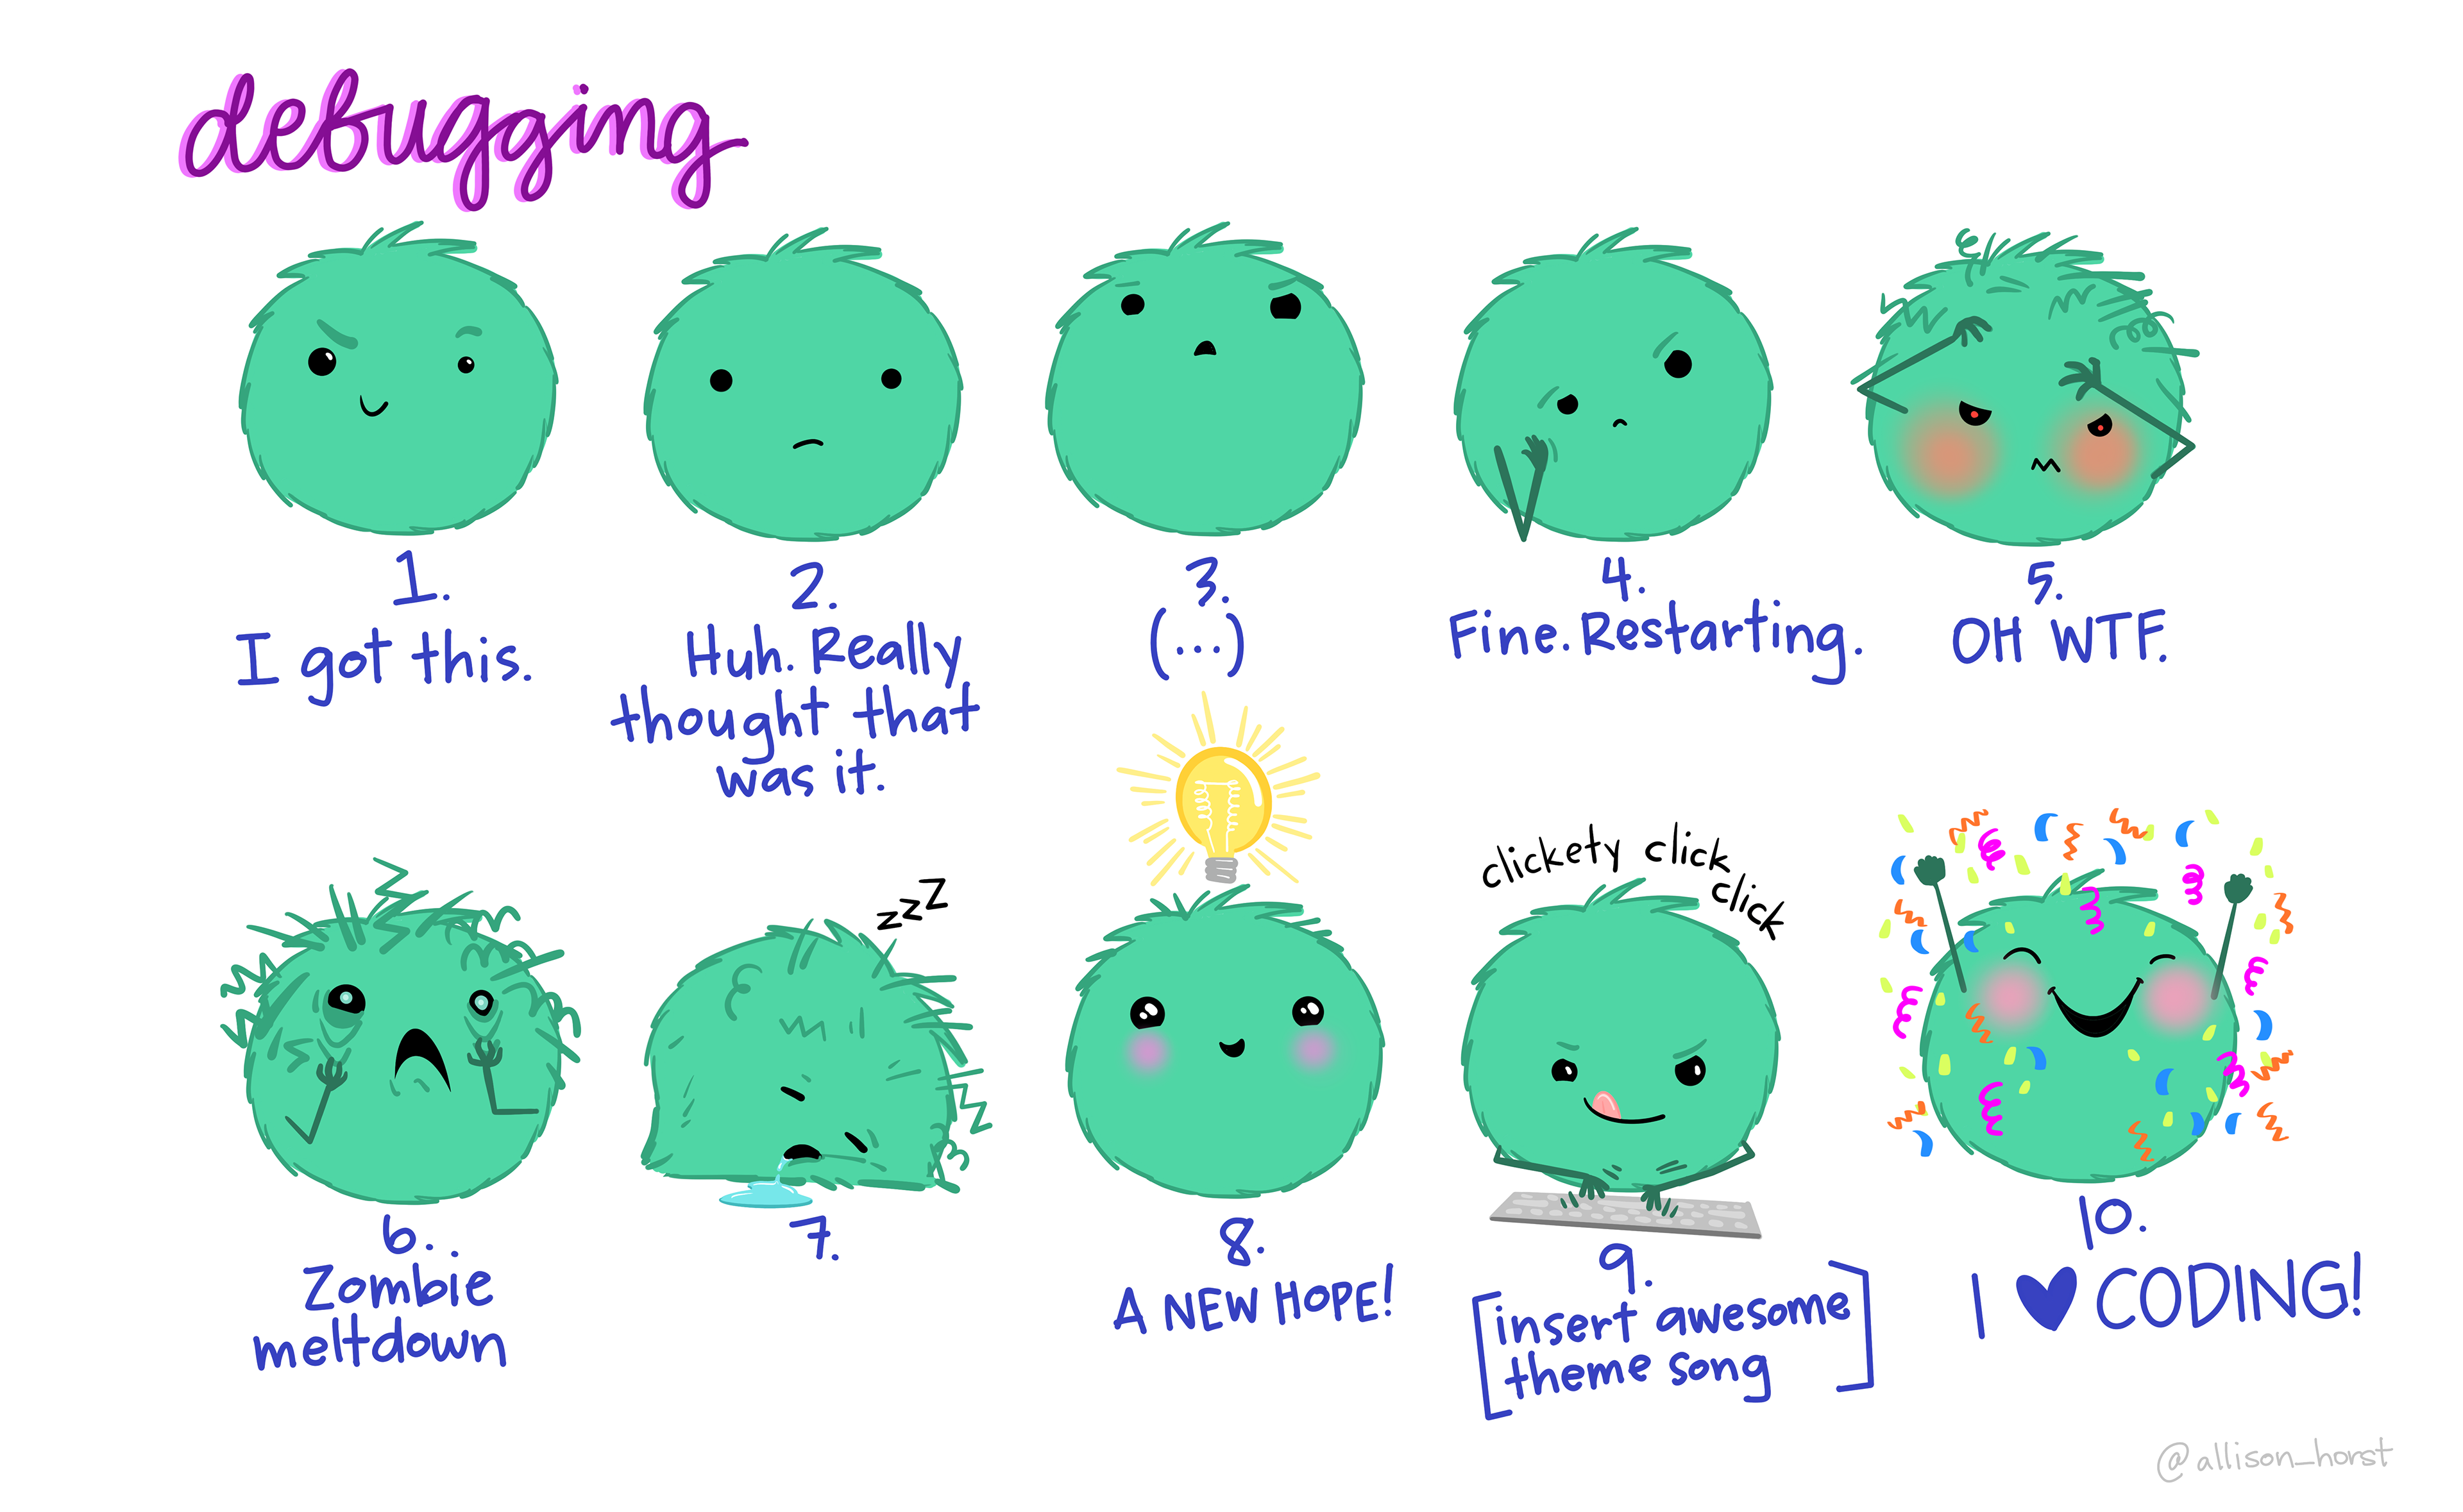 debugging
1.
I got this.
2.
Huh. Really
thought that
was it.
3.
(...)
4.
Fine. Restarting.
5.
OH WTF.
6.
Zombie
meltdown
zzZ
7.
8.
A NEW HOPE!
clickety click
click
9.
[insert awesome
theme song]
10.
I ♥ CODING!
@allison_horst